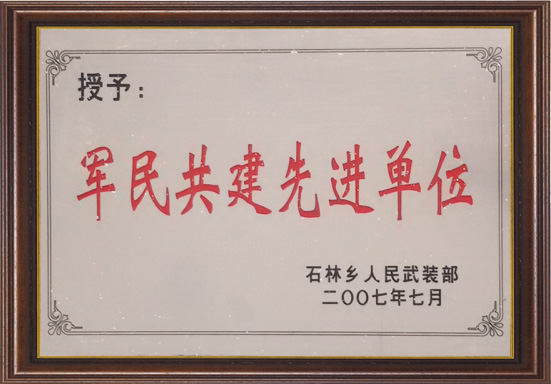 授予：
军民共建先进单位
石林乡人民武装部
二〇〇七年七月